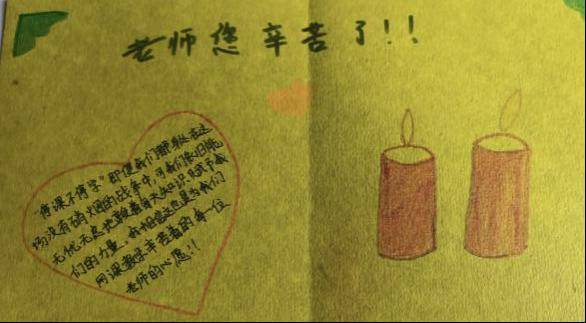 老师您辛苦了!!
"停课不停学"即使我们都身在这
场没有硝烟的战争中,可我们依旧能
无忧无虑地
们的力量,我相信这也是为我们
网课教学辛苦着的每一位
老师的心愿!!